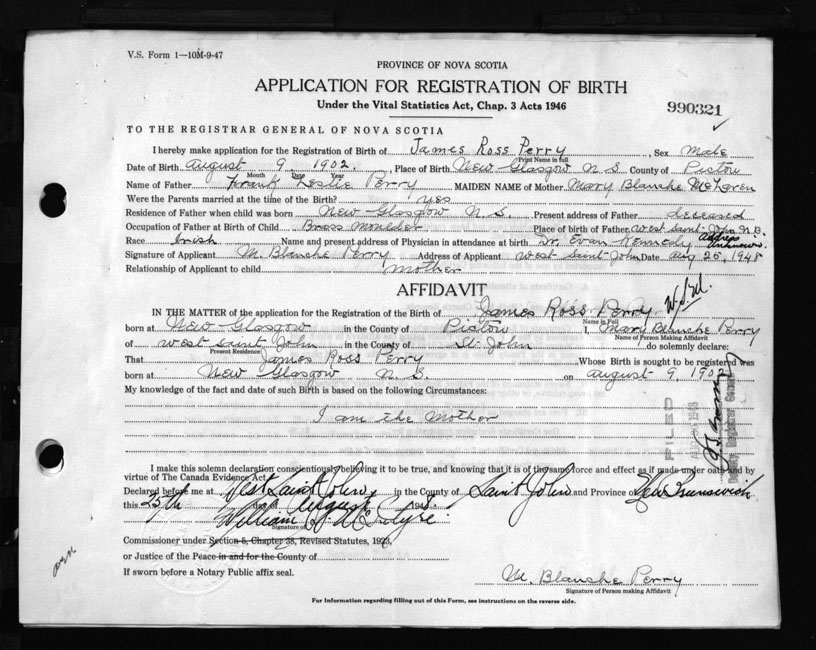 V.S. Form 1—10M-9-47
PROVINCE OF NOVA SCOTIA
APPLICATION FOR REGISTRATION OF BIRTH
Under the Vital Statistics Act, Chap. 3 Acts 1946
990321
TO THE REGISTRAR GENERAL OF NOVA SCOTIA
I hereby make application for the Registration of Birth of James Ross Perry Sex Male
Print Name in full
Date of Birth August 9, 1902. Place of Birth New-Glasgow N S County of Pictou
Month Date Year
Name of Father Frank Leslie Perry MAIDEN NAME of Mother Mary Blanche McLaren
Were the Parents married at the time of the Birth? Yes
Residence of Father when child was born New-Glasgow N. S. Present address of Father deceased
Occupation of Father at Birth of Child Brass Moulder Place of birth of Father West Saint-John N.B.
Race Irish Name and present address of Physician in attendance at birth Dr. Evan Kennedy address unknown.
Signature of Applicant M. Blanche Perry Address of Applicant West Saint-John Date Aug 25, 1948
Relationship of Applicant to child mother
AFFIDAVIT
IN THE MATTER of the application for the Registration of the Birth of James Ross Perry
Name in Full
born at New-Glasgow in the County of Pictou I, Mary Blanche Perry
Name of Person Making Affidavit
of West Saint John in the County of St-John do solemnly declare:
Present Residence
That James Ross Perry Whose Birth is sought to be registered was
born at New Glasgow N. S. on August 9, 1902
My knowledge of the fact and date of such Birth is based on the following Circumstances:
I am the Mother
FILED
1948
Deputy Registrar General
I make this solemn declaration conscientiously believing it to be true, and knowing that it is of the same force and effect as if made under oath and by
virtue of The Canada Evidence Act.
Declared before me at West Saint John, in the County of Saint John and Province of New Brunswick
this 25th day of August 1948.
William
Signature of
Commissioner under Section 5, Chapter 38, Revised Statutes, 1923,
or Justice of the Peace in and for the County of
If sworn before a Notary Public affix seal.
M. Blanche Perry
Signature of Person making Affidavit
For Information regarding filling out of this Form, see instructions on the reverse side.